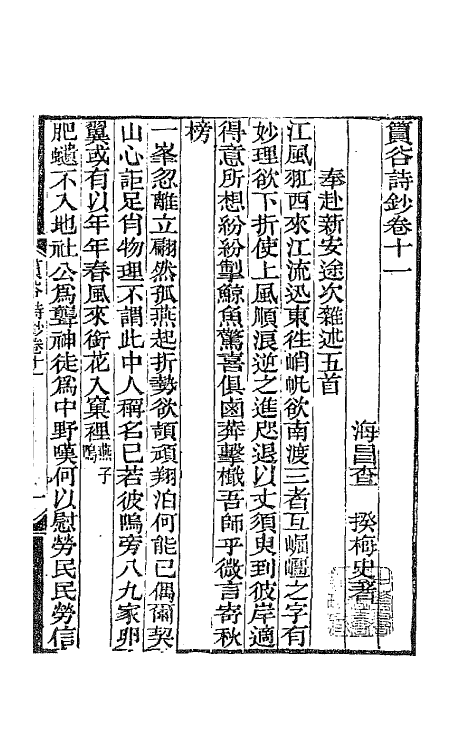 篔谷詩鈔卷十一
海昌查 揆梅史著
奉赴新安途次雜述五首
江風邪西來江流迅東往峭帆欲南渡三者互崛彊之字有
妙理欲下折使上風順浪逆之進咫退以丈須臾到彼岸適
得意所想紛紛掣鯨魚驚喜俱鹵莽擊檝吾師乎微言寄秋
榜
一峯忽離立翩然孤燕起折勢欲頡頏翔泊何能已偶爾契
山心詎足肖物理不謂此中人稱名已若彼鳴旁八九家卵
翼或有以年年春風來銜花入窠裡燕子
鳴
肥蠵不入地社公爲聾神徒爲中野嘆何以慰勞民民勞信
篔谷詩鈔卷十一
一